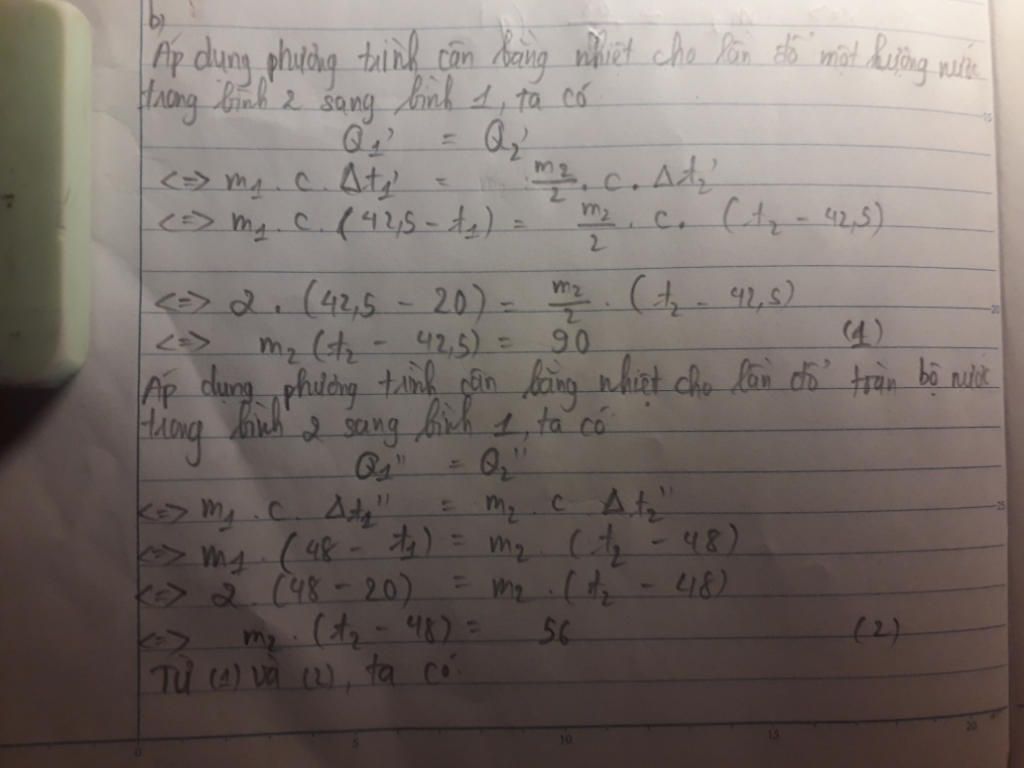 b)
Áp dụng phương trình cân bằng nhiệt cho lần đổ một lượng nước
trong bình 2 sang bình 1, ta có
Q₁' = Q₂'
<=> m₁ . c . Δt₁' = m₂/2 . c . Δt₂'
<=> m₁ . c . (42,5 - t₁) = m₂/2 . c . (t₂ - 42,5)
<=> 2 . (42,5 - 20) = m₂/2 . (t₂ - 42,5)
<=> m₂ (t₂ - 42,5) = 90 (1)
Áp dụng phương trình cân bằng nhiệt cho lần đổ toàn bộ nước
trong bình 2 sang bình 1, ta có
Q₁'' = Q₂''
<=> m₁ . c . Δt₁'' = m₂ . c Δt₂''
<=> m₁ . (48 - t₁) = m₂ . (t₂ - 48)
<=> 2 . (48 - 20) = m₂ . (t₂ - 48)
<=> m₂ . (t₂ - 48) = 56 (2)
Từ (1) và (2), ta có:
15
20
25
0 5 10 15 20